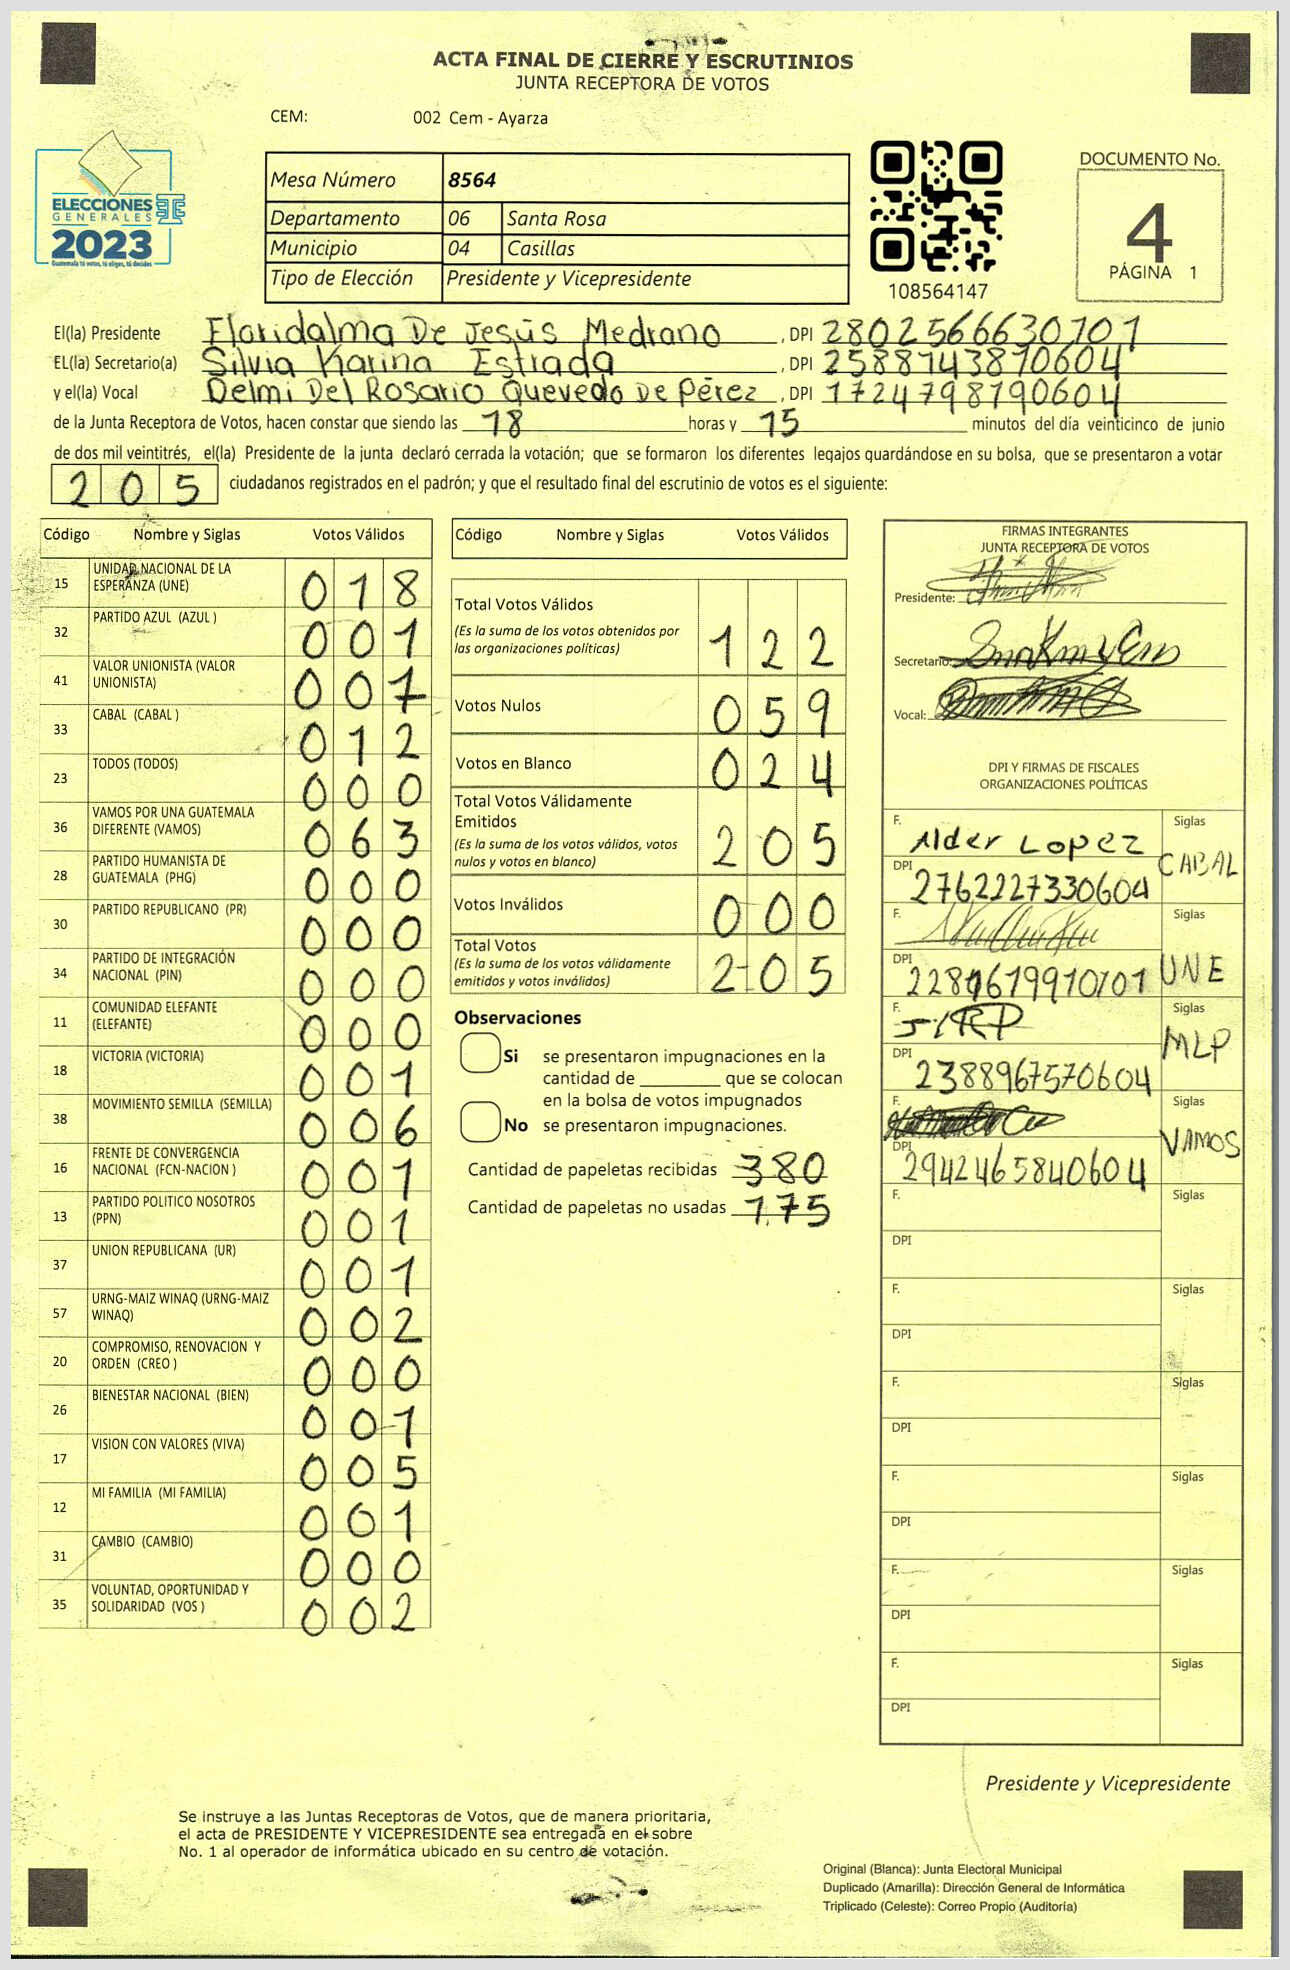 ACTA FINAL DE CIERRE Y ESCRUTINIOS
JUNTA RECEPTORA DE VOTOS
CEM: 002 Cem - Ayarza
ELECCIONES
GENERALES
2023
Guatemala tú votas, tú eliges, tú decides
Mesa Número 8564
Departamento 06 Santa Rosa
Municipio 04 Casillas
Tipo de Elección Presidente y Vicepresidente
108564147
DOCUMENTO No.
4
PÁGINA 1
El(la) Presidente Floridalma De Jesús Medrano, DPI 2802566630101
EL(la) Secretario(a) Silvia Karina Estrada, DPI 2588143870604
y el(la) Vocal Delmi Del Rosario Quevedo De Pérez, DPI 1724798190604
de la Junta Receptora de Votos, hacen constar que siendo las 18 horas y 15 minutos del día veinticinco de junio
de dos mil veintitrés, el(la) Presidente de la junta declaró cerrada la votación; que se formaron los diferentes legajos guardándose en su bolsa, que se presentaron a votar
205 ciudadanos registrados en el padrón; y que el resultado final del escrutinio de votos es el siguiente:
Código Nombre y Siglas Votos Válidos
15 UNIDAD NACIONAL DE LA ESPERANZA (UNE) 018
32 PARTIDO AZUL (AZUL ) 001
41 VALOR UNIONISTA (VALOR UNIONISTA) 007
33 CABAL (CABAL ) 012
23 TODOS (TODOS) 000
36 VAMOS POR UNA GUATEMALA DIFERENTE (VAMOS) 063
28 PARTIDO HUMANISTA DE GUATEMALA (PHG) 000
30 PARTIDO REPUBLICANO (PR) 000
34 PARTIDO DE INTEGRACIÓN NACIONAL (PIN) 000
11 COMUNIDAD ELEFANTE (ELEFANTE) 000
18 VICTORIA (VICTORIA) 001
38 MOVIMIENTO SEMILLA (SEMILLA) 006
16 FRENTE DE CONVERGENCIA NACIONAL (FCN-NACION ) 001
13 PARTIDO POLITICO NOSOTROS (PPN) 001
37 UNION REPUBLICANA (UR) 001
57 URNG-MAIZ WINAQ (URNG-MAIZ WINAQ) 002
20 COMPROMISO, RENOVACION Y ORDEN (CREO ) 000
26 BIENESTAR NACIONAL (BIEN) 001
17 VISION CON VALORES (VIVA) 005
12 MI FAMILIA (MI FAMILIA) 001
31 CAMBIO (CAMBIO) 000
35 VOLUNTAD, OPORTUNIDAD Y SOLIDARIDAD (VOS ) 002
Código Nombre y Siglas Votos Válidos
Total Votos Válidos 122
(Es la suma de los votos obtenidos por
las organizaciones políticas)
Votos Nulos 059
Votos en Blanco 024
Total Votos Válidamente
Emitidos 205
(Es la suma de los votos válidos, votos
nulos y votos en blanco)
Votos Inválidos 000
Total Votos 205
(Es la suma de los votos válidamente
emitidos y votos inválidos)
Observaciones
Si se presentaron impugnaciones en la
cantidad de ________ que se colocan
en la bolsa de votos impugnados
No se presentaron impugnaciones.
Cantidad de papeletas recibidas 380
Cantidad de papeletas no usadas 175
FIRMAS INTEGRANTES
JUNTA RECEPTORA DE VOTOS
Presidente:
Secretario:
Vocal:
DPI Y FIRMAS DE FISCALES
ORGANIZACIONES POLÍTICAS
F. Alder Lopez Siglas CABAL
DPI 2762227330604
F. Siglas UNE
DPI
F. Siglas MLP
DPI 2388967570604
F. Siglas VAMOS
DPI 2942465840604
F. Siglas
DPI
F. Siglas
DPI
F. Siglas
DPI
F. Siglas
DPI
F. Siglas
DPI
F. Siglas
DPI
Presidente y Vicepresidente
Se instruye a las Juntas Receptoras de Votos, que de manera prioritaria,
el acta de PRESIDENTE Y VICEPRESIDENTE sea entregada en el sobre
No. 1 al operador de informática ubicado en su centro de votación.
Original (Blanca): Junta Electoral Municipal
Duplicado (Amarilla): Dirección General de Informática
Triplicado (Celeste): Correo Propio (Auditoría)